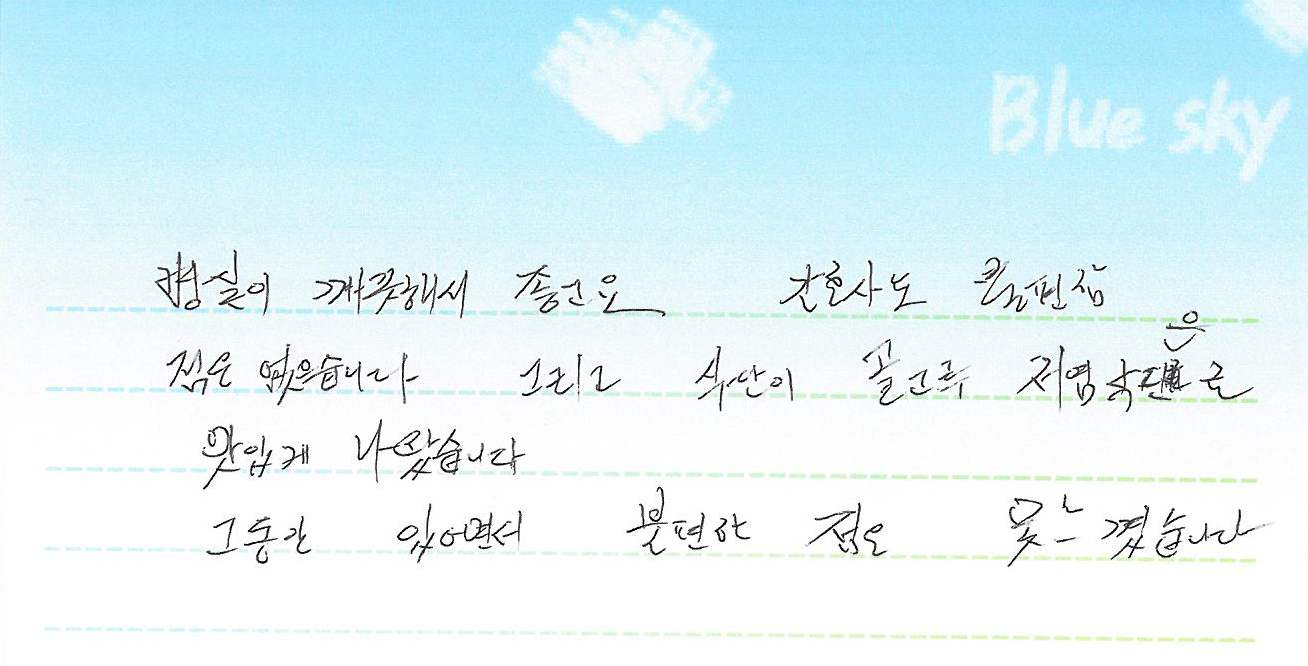 Blue sky
병실이 깨끗해서 좋고요 간호사도 큰 불편한
점은 없었습니다 그리고 식단이 골고루 저염식단으로
맛있게 나왔습니다
그동안 있으면서 불편한 점은 못느꼈습니다